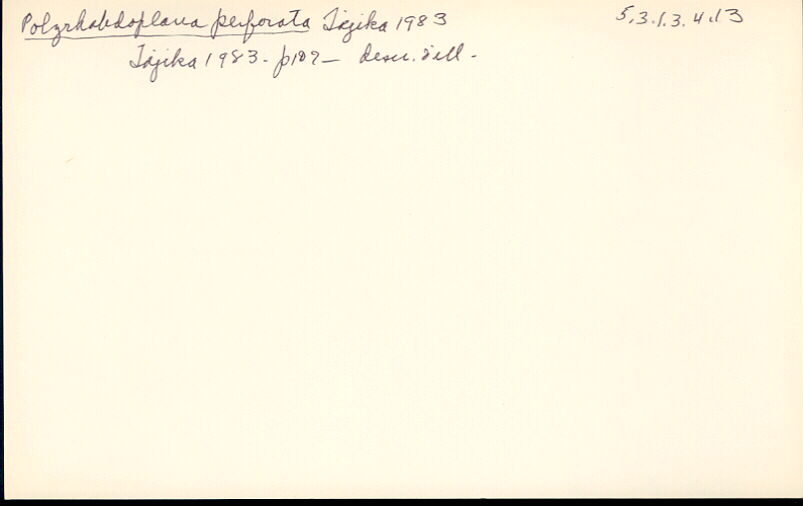 Polyrhabdoplana perforata Tajika 1983 5.3.1.3.4.13
Tajika 1983 - p109 - descr. & ill -